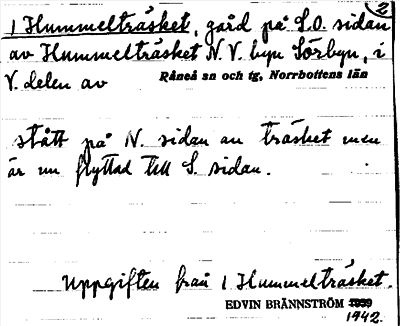 2
1 Hummelträsket, gård på S.O. sidan
av Hummelträsket N.V. byn Sörbyn, i
V. delen av Råneå sn och tg, Norrbottens län
stått på N. sidan av träsket men
är nu flyttad till S. sidan.
Uppgiften från 1 Hummelträsket.
EDVIN BRÄNNSTRÖM 1939
1942.